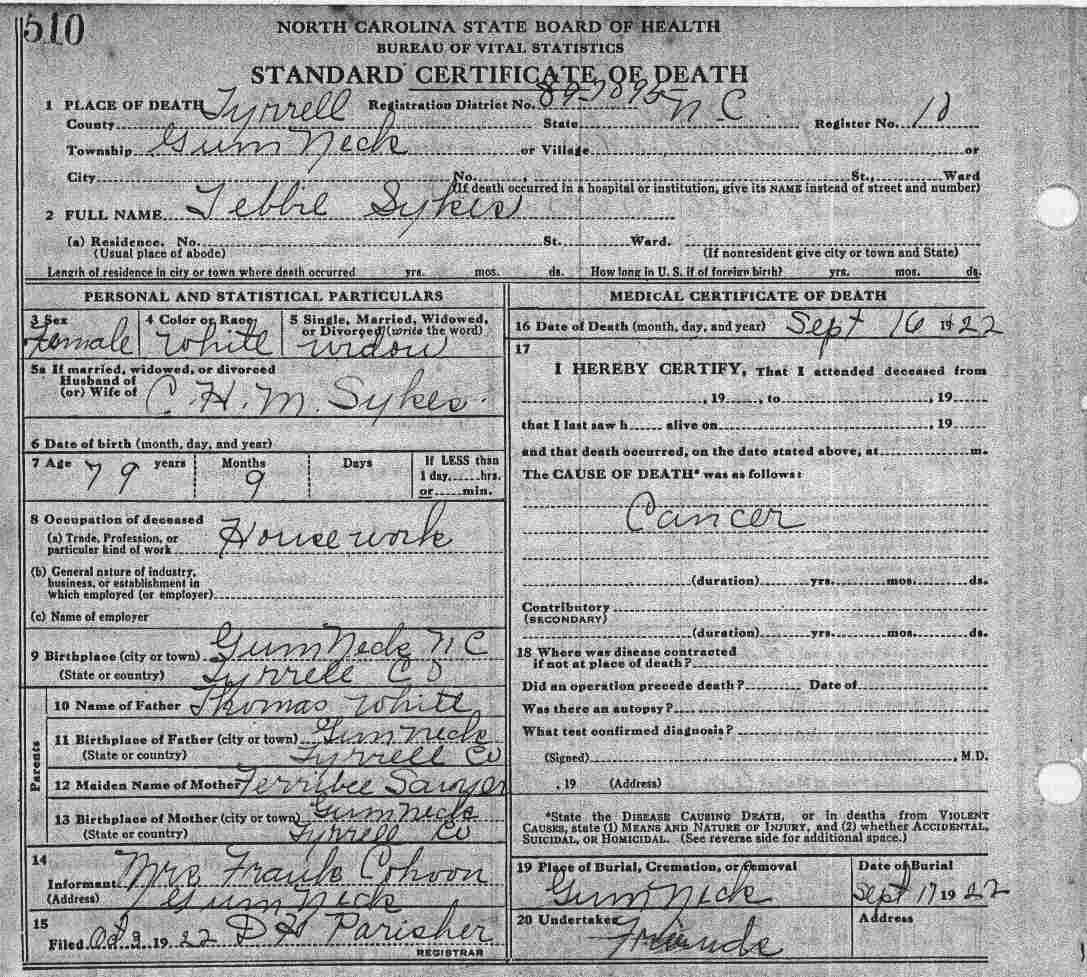 510
NORTH CAROLINA STATE BOARD OF HEALTH
BUREAU OF VITAL STATISTICS
STANDARD CERTIFICATE OF DEATH
1 PLACE OF DEATH Registration District No. 89-7895-
County Tyrrell State N C Register No. 10
Township Gum Neck or Village or
City No. , St., Ward
(If death occurred in a hospital or institution, give its NAME instead of street and number)
2 FULL NAME Tebbie Sykes
(a) Residence. No. St. Ward.
(Usual place of abode) (If nonresident give city or town and State)
Length of residence in city or town where death occurred yrs. mos. ds. How long in U. S. if of foreign birth? yrs. mos. ds.
PERSONAL AND STATISTICAL PARTICULARS
3 Sex
Female
4 Color or Race
White
5 Single, Married, Widowed,
or Divorced (write the word)
widow
5a If married, widowed, or divorced
Husband of
(or) Wife of C. H. M. Sykes.
6 Date of birth (month, day, and year)
7 Age 79 years Months 9 Days If LESS than
1 day,......hrs.
or......min.
8 Occupation of deceased
(a) Trade, Profession, or
particular kind of work House work
(b) General nature of industry,
business, or establishment in
which employed (or employer)
(c) Name of employer
9 Birthplace (city or town) Gum Neck N C
(State or country) Tyrrell Co
Parents
10 Name of Father Thomas White
11 Birthplace of Father (city or town) Gum Neck
(State or country) Tyrrell Co
12 Maiden Name of Mother Ferribee Sawyer
13 Birthplace of Mother (city or town) Gum Neck
(State or country) Tyrrell Co
14
Informant Mrs Frank Cohoon
(Address) Gum Neck
15
Filed Oct 9 1922 D H Parisher
REGISTRAR
MEDICAL CERTIFICATE OF DEATH
16 Date of Death (month, day, and year) Sept 16 1922
17
I HEREBY CERTIFY, That I attended deceased from
, 19......, to , 19
that I last saw h alive on , 19
and that death occurred, on the date stated above, at m.
The CAUSE OF DEATH* was as follows:
Cancer
(duration) yrs. mos. ds.
Contributory
(SECONDARY)
(duration) yrs. mos. ds.
18 Where was disease contracted
if not at place of death?
Did an operation precede death? Date of
Was there an autopsy?
What test confirmed diagnosis?
(Signed) , M.D.
, 19 (Address)
*State the DISEASE CAUSING DEATH, or in deaths from VIOLENT
CAUSES, state (1) MEANS AND NATURE OF INJURY, and (2) whether ACCIDENTAL,
SUICIDAL, OR HOMICIDAL. (See reverse side for additional space.)
19 Place of Burial, Cremation, or Removal
Gum Neck
Date of Burial
Sept 17 1922
20 Undertaker
Friends
Address